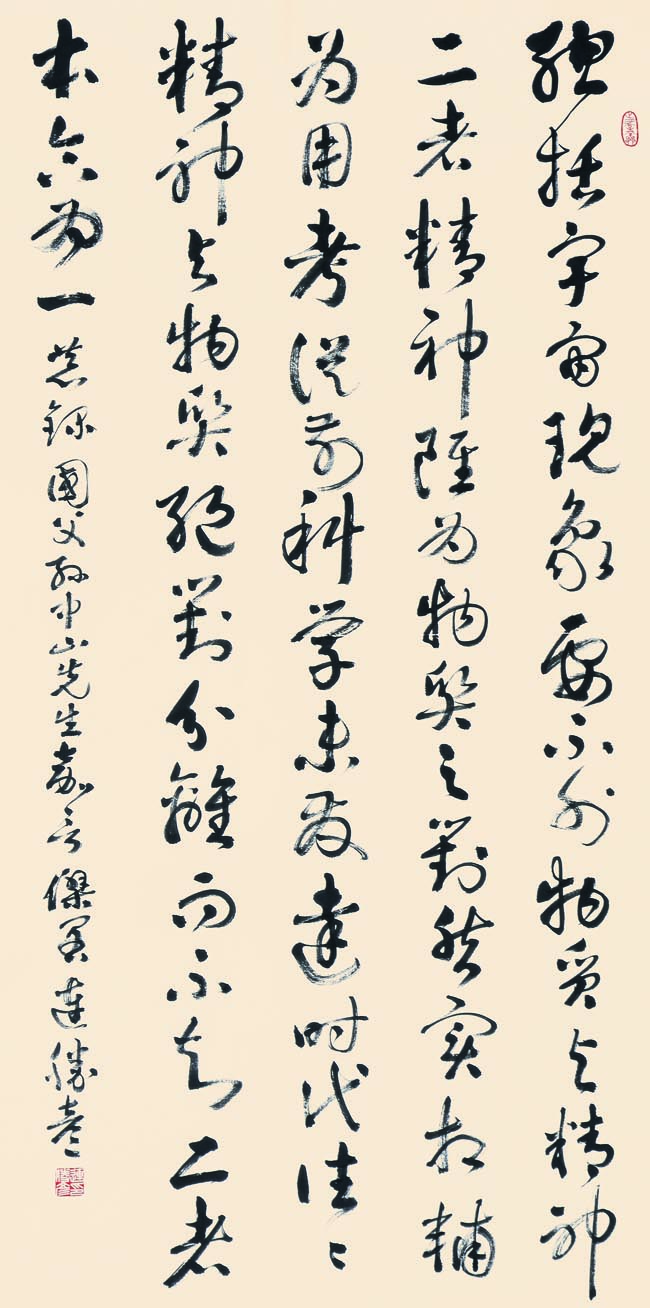 總括宇宙現象要不外物質與精神
二者精神雖為物質之對然實相輔
為用考從前科學未發達時代往〻
精神與物質絕對分離而不知二者
本合為一 恭錄國父孫中山先生嘉言 傑閣連勝彥